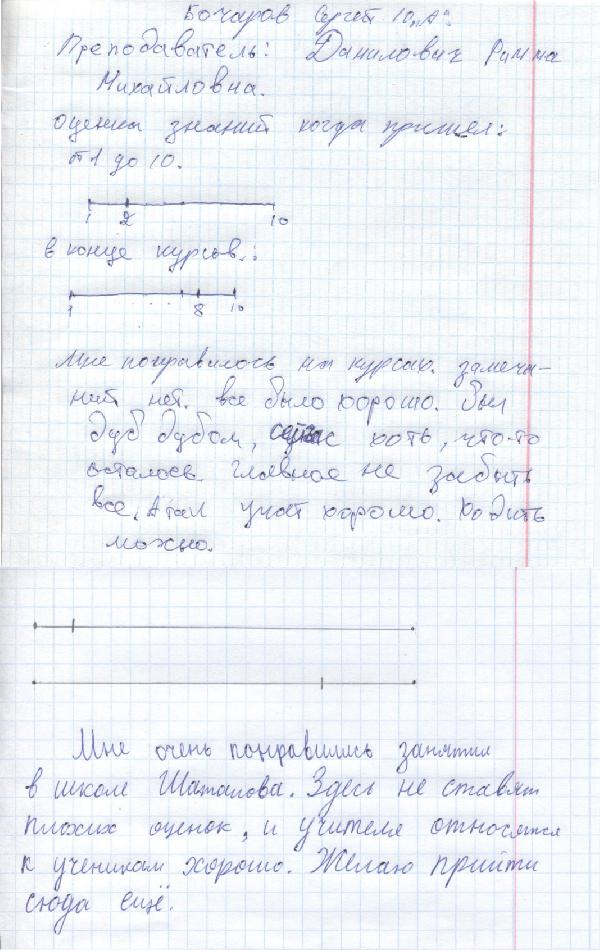 Бочаров Сергей 10„А"
Преподаватель: Данилович Римма
Михайловна.
оценки знаний когда пришел:
от 1 до 10.
1 2 10
в конце курсов.:
1 8 10
Мне понравилось на курсах. замеча-
ний нет. все было хорошо. был
дуб дубом, сейчас хоть, что-то
осталось. главное не забыть
все. А так учат хорошо. Ходить
можно.
Мне очень понравились занятия
в школе Шаталова. Здесь не ставят
плохих оценок, и учителя относятся
к ученикам хорошо. Желаю прийти
сюда ещё.